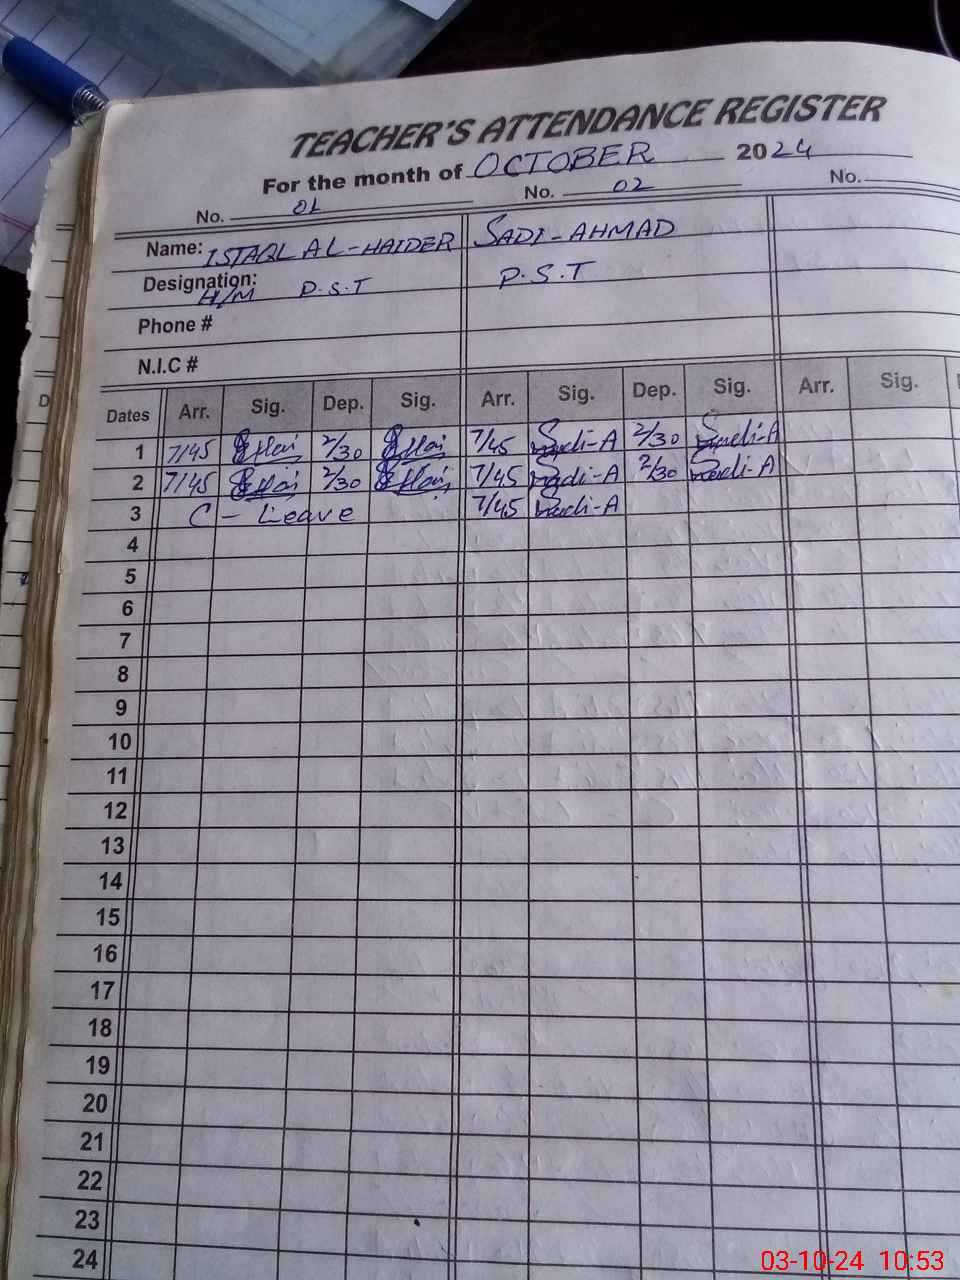 TEACHER'S ATTENDANCE REGISTER
For the month of OCTOBER 2024
No. 01 No. 02 No.
Name: ISTAQL AL-HAIDER SADI-AHMAD
Designation: H/M P.S.T P.S.T
Phone #
N.I.C #
Dates Arr. Sig. Dep. Sig. Arr. Sig. Dep. Sig. Arr. Sig.
1 7/45 2/30 7/45 Sadi-A 2/30 Sadi-A
2 7/45 2/30 7/45 Sadi-A 2/30 Sadi-A
3 C - Leave 7/45 Sadi-A
4
5
6
7
8
9
10
11
12
13
14
15
16
17
18
19
20
21
22
23
24
03-10-24 10:53